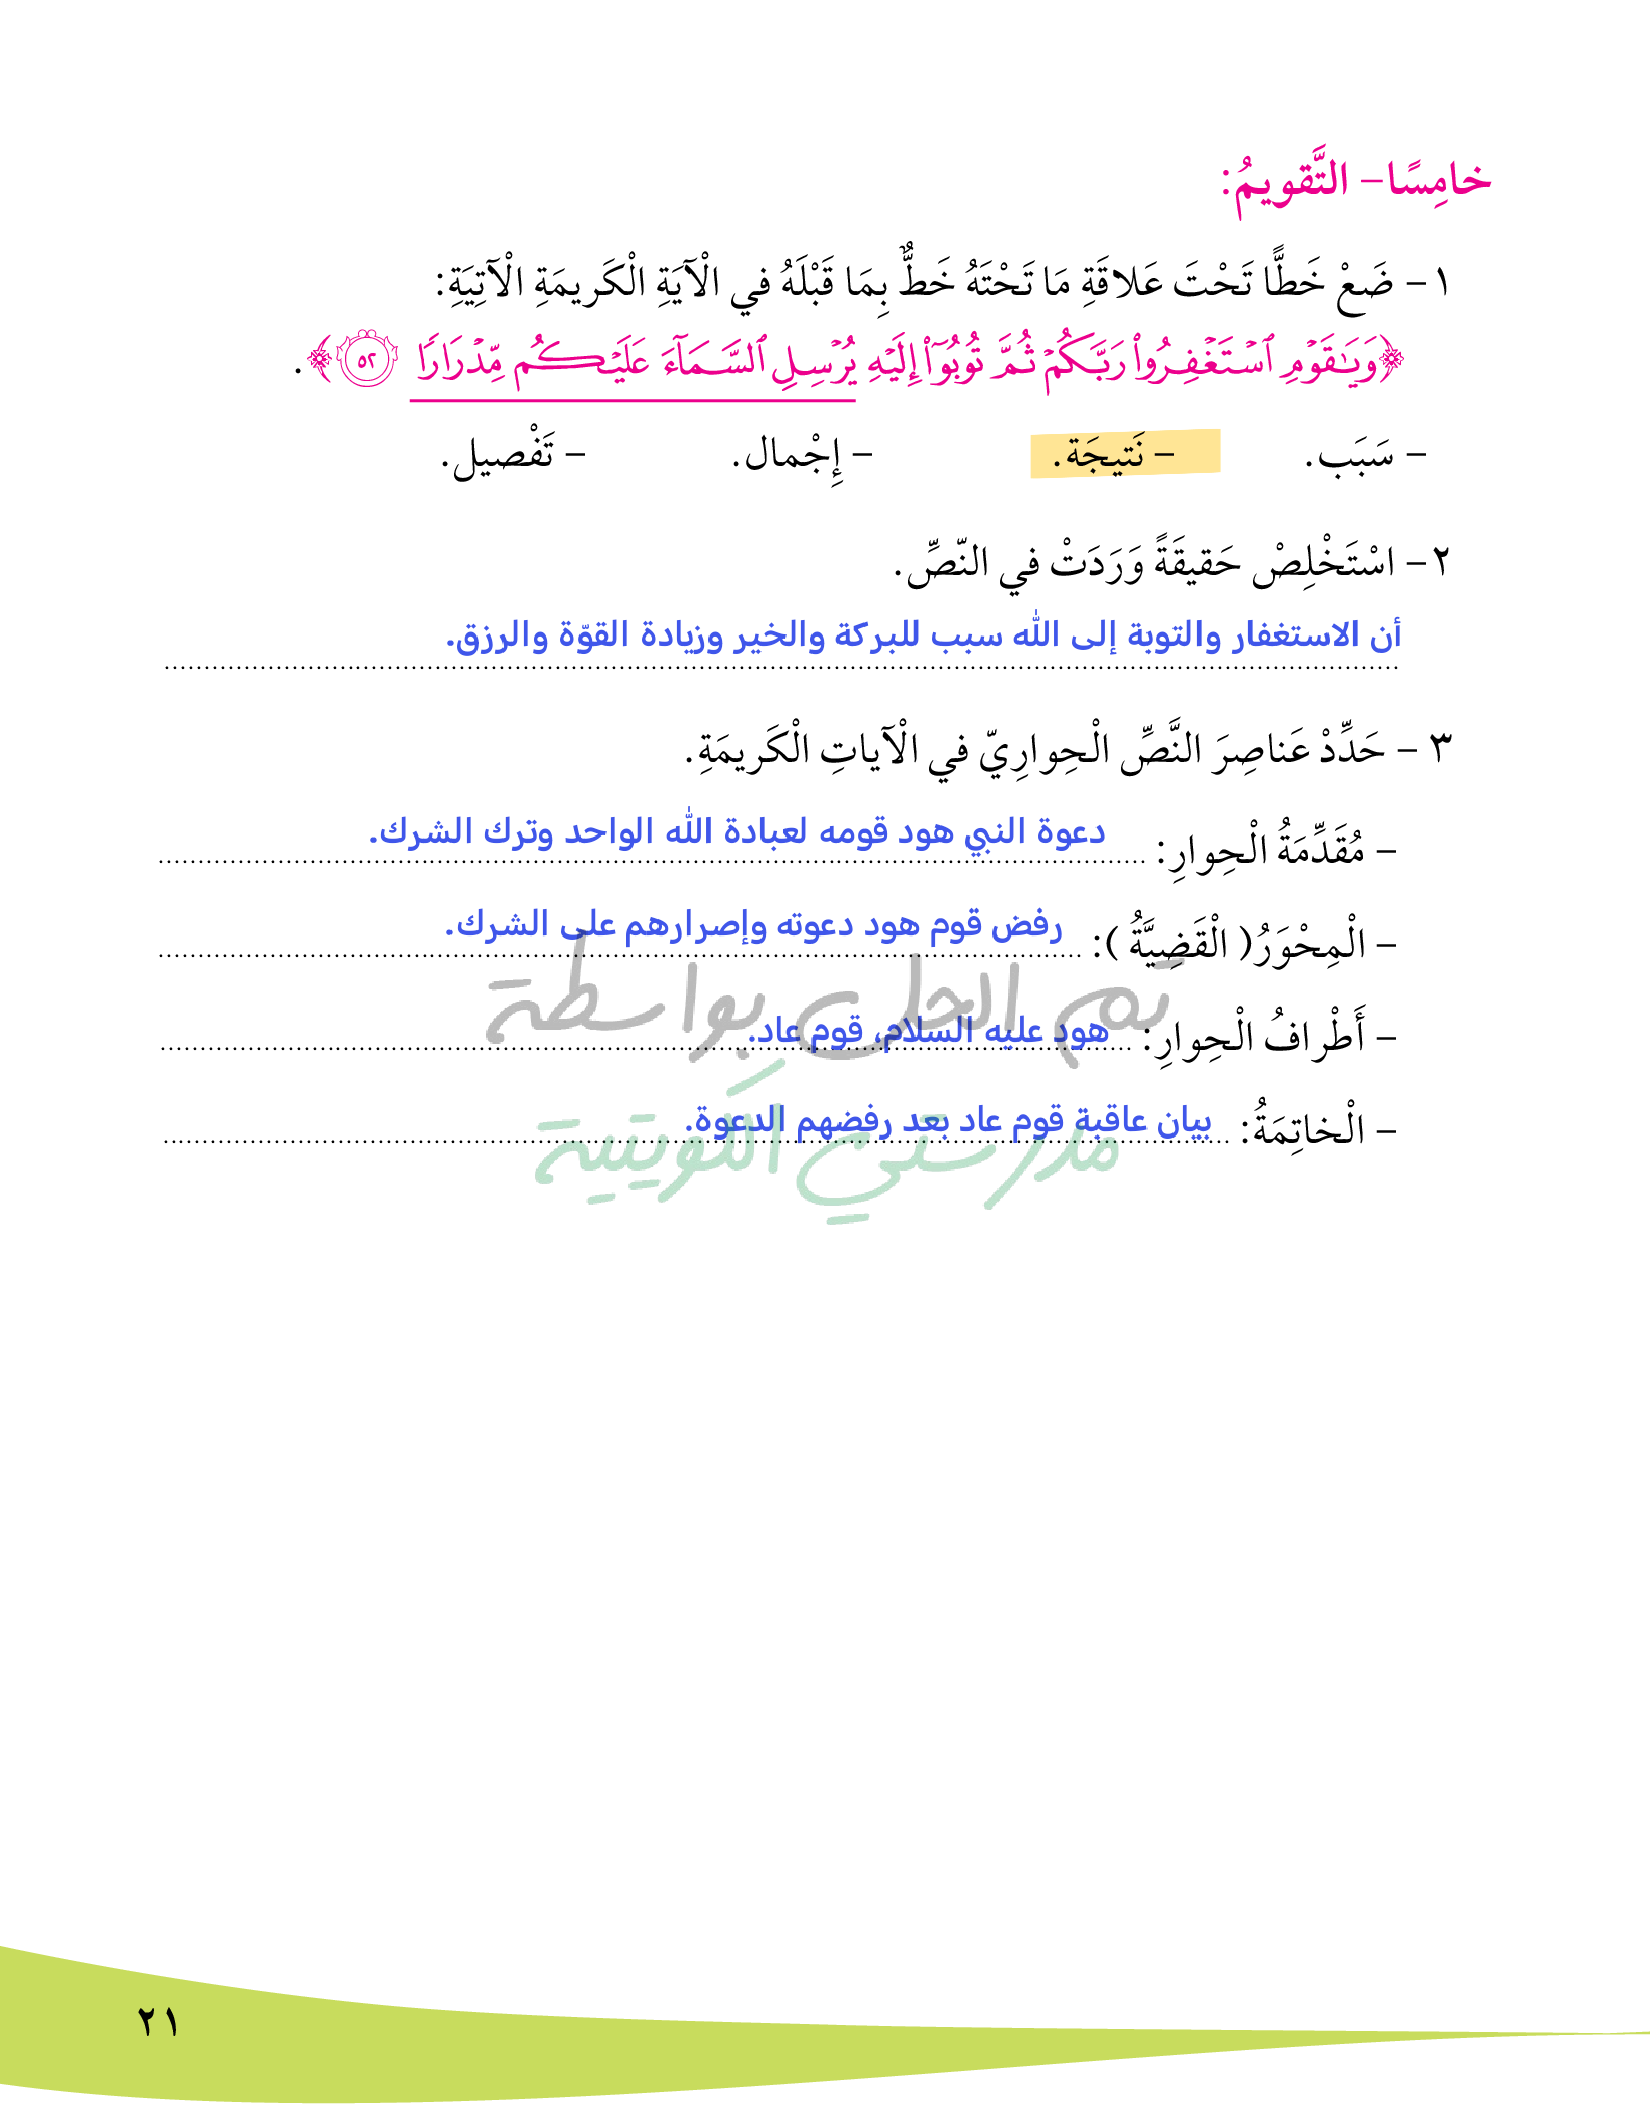 خامِسًا– التَّقويمُ:
١– ضَعْ خَطًّا تَحْتَ عَلاقَةِ مَا تَحْتَهُ خَطٌّ بِمَا قَبْلَهُ في الْآيَةِ الْكَريمَةِ الْآتِيَةِ:
﴿وَيَٰقَوْمِ ٱسْتَغْفِرُوا۟ رَبَّكُمْ ثُمَّ تُوبُوٓا۟ إِلَيْهِ يُرْسِلِ ٱلسَّمَآءَ عَلَيْكُم مِّدْرَارًا ٥٢﴾.
– سَبَب. – نَتيجَة. – إِجْمال. – تَفْصيل.
٢– اسْتَخْلِصْ حَقيقَةً وَرَدَتْ في النّصِّ.
أن الاستغفار والتوبة إلى الله سبب للبركة والخير وزيادة القوّة والرزق.
٣ – حَدِّدْ عَناصِرَ النَّصِّ الْحِوارِيّ في الْآياتِ الْكَريمَةِ.
– مُقَدِّمَةُ الْحِوارِ: دعوة النبي هود قومه لعبادة الله الواحد وترك الشرك.
– الْمِحْوَرُ( الْقَضِيَّةُ ): رفض قوم هود دعوته وإصرارهم على الشرك.
تم الحل بواسطة
– أَطْرافُ الْحِوارِ: هود عليه السلام، قوم عاد.
– الْخاتِمَةُ: بيان عاقبة قوم عاد بعد رفضهم الدعوة.
مدرستي الكويتية
٢١